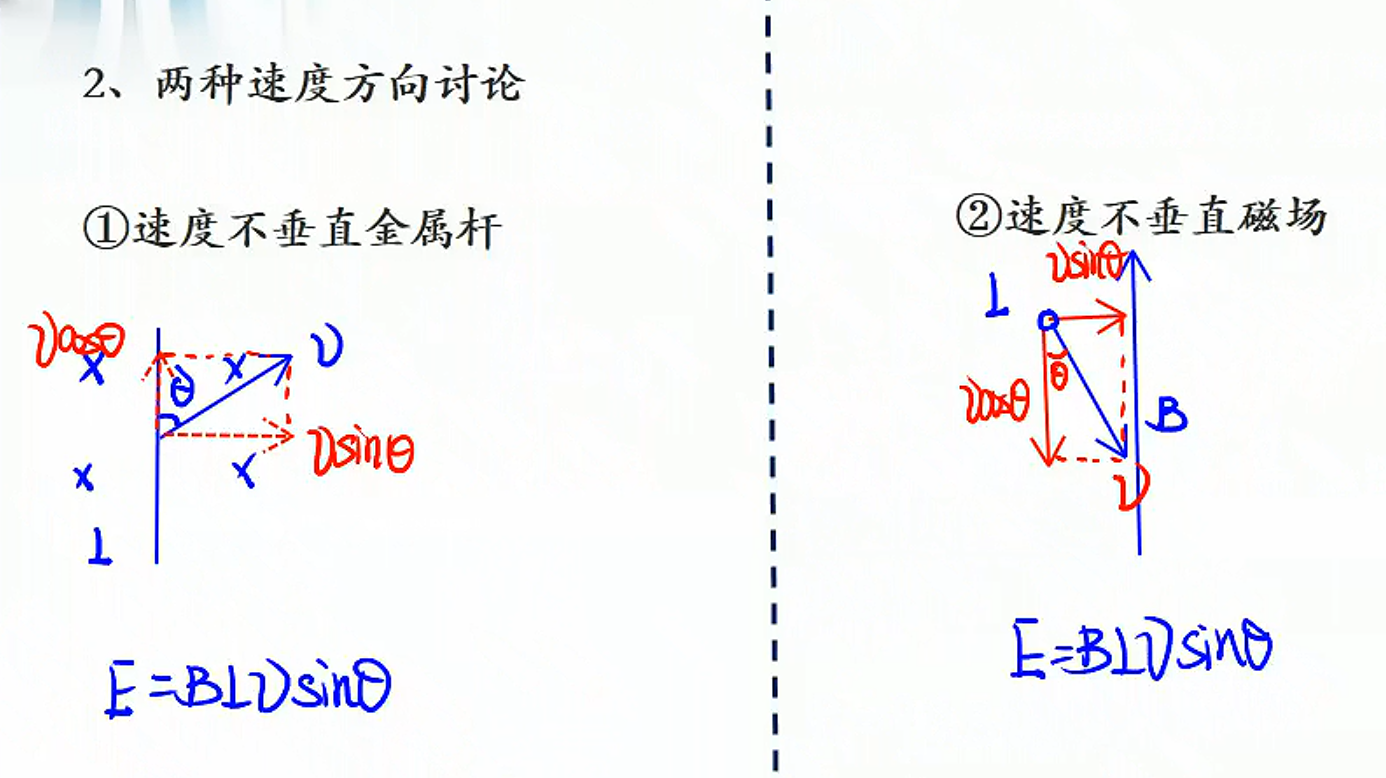 2、两种速度方向讨论
①速度不垂直金属杆
vcosθ
θ
v
x
x
x
x
vsinθ
L
E=BLvsinθ
②速度不垂直磁场
vsinθ
L
θ
vcosθ
B
v
E=BLvsinθ